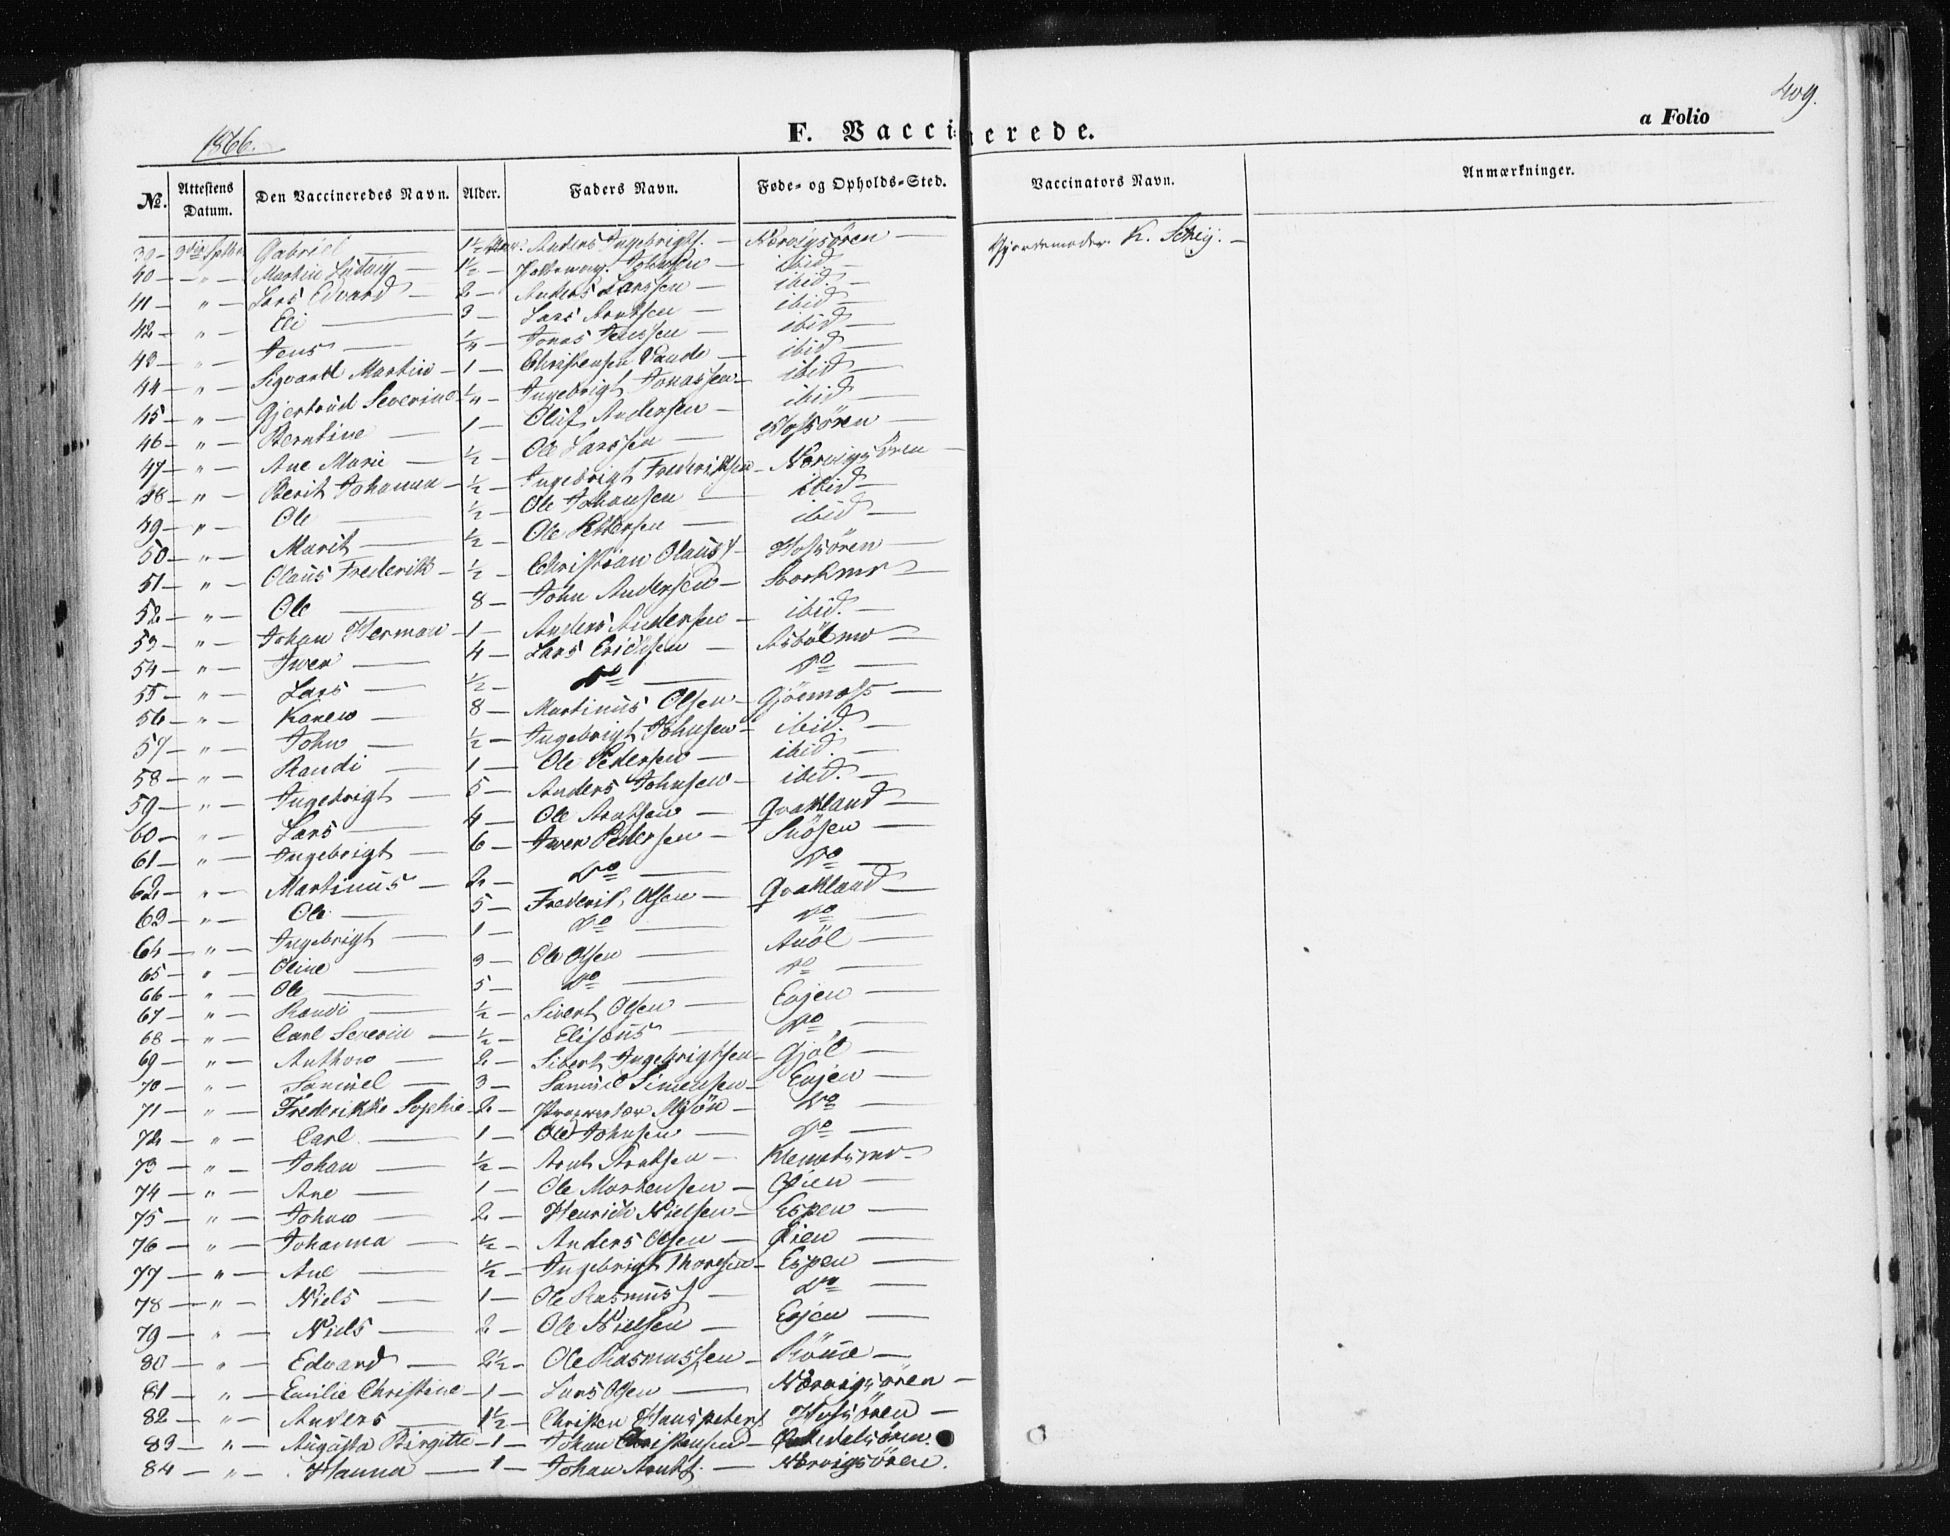 409.
1866.
F. Vaccinerede.
a Folio
No. Attestens Datum. Den Vaccineredes Navn. Alder. Faders Navn. Føde- og Opholds-Sted. Vaccinators Navn. Anmærkninger.
39 — Gabriel 1½ Anders Ingebrigts. — Nærvigsören — Gjordemoder K. Schej. —
40 — " — Martin Ludvig — 1½ — Johnsen — ibid —
41 — " — Lars Edvard — 2 — Anders Larssen — ibid. —
42 — " — Eli — 3 — Lars Arntsen — ibid —
43 — " — Jens — ½ — Jonas Jenssen — ibid —
44 — " — Sigvardt Martin — 1 — Christensen — ibid —
45 — " — Gjertrud Severine — ½ — Ingebrigt Jonassen — ibid —
46 — " — Berntine — 1 — Oluf Andersen — ibid —
47 — " — Ane Marie — ½ — Ole Larssen — Hofsören —
48 — " — Berit Johanna — ½ — Ingebrigt Frederiksen — Nærvigsören —
49 — " — Ole — ½ — Ole Johansen — ibid —
50 — " — Marit — ½ — Ole Pettersen — ibid —
51 — " — Olaus Frederik — ½ — Christian Olaus — Hofsören —
52 — " — Ole — 8 — John Andersen —
53 — " — Johan Herman — 1 — Anders Andersen — ibid. —
54 — " — Iwer — 4 — Lars Erichsen —
55 — " — Lars — ½ — Do — Do —
56 — " — Karen — 8 — Martinus Olsen — Gjönnæss —
57 — " — John — ½ — Ingebrigt Johnsen — ibid. —
58 — " — Randi — 1 — Ole Pedersen — ibid. —
59 — " — Ingebrigt — 5 — Anders Johnsen — ibid. —
60 — " — Lars — 4 — Ole Arntsen — Qvakland —
61 — " — Ingebrigt — 6 — Iwer Pedersen — Snösen —
62 — " — Martinus — 2 — Do — Do —
63 — " — Ole — 5 — Frederik Olsen — Qvakland —
64 — " — Ingebrigt — 1 — Do — Do —
65 — " — Oline — 3 — Ole Olsen — Auöl —
66 — " — Ole — 5 — Do — Do —
67 — " — Randi — ½ — Sivert Olsen — Evjen —
68 — " — Carl Severin — ½ — Elisæus — Do —
69 — " — Anthon — 2 — Sivert Ingebrigtsen — Gjöl —
70 — " — Samuel — 3 — Samuel Simensen — Evjen —
71 — " — Frederikke Sophie — 2 — Mjön — Do —
72 — " — Carl — 1 — Ole Johnsen — Do —
73 — " — Johan — ½ — Arnt Arntsen —
74 — " — Ane — 1 — Ole Mortensen — Öien —
75 — " — Johan — 2 — Henrich Nielsen — Espen —
76 — " — Johanna — ½ — Anders Olsen — Öien —
77 — " — Ane — ½ — Ingebrigt Thoresen — Espen —
78 — " — Niels — 1 — Ole Rasmuss — Do —
79 — " — Niels — 2 — Ole Nielsen — Evjen —
80 — " — Edvard — 2½ — Ole Rasmussen — Römme —
81 — " — Emilie Christine — 1 — Lars Olsen — Nærvigsören —
82 — " — Anders — 1½ — Christen Hanspeters. Hofsören —
83 — " — Augusta Birgitte — 1 — Johan Christensen — Orkedalsören.
84 — " — Hanna — 1 — Johan Arnts. — Nærvigsören.